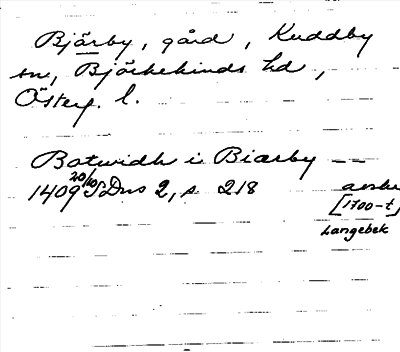 Bjärby, gård, Kuddby
sn, Björkekinds hd,
Österg. l.
Botwidh i Biærby — —
1409 20/10 SDns 2, s 218 avskr
[1700-t]
Langebek